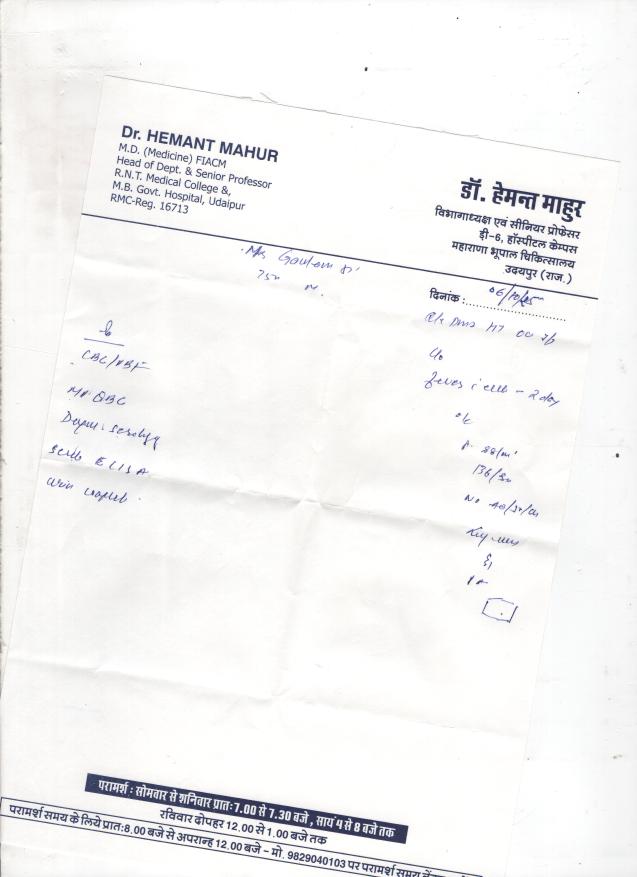 Dr. HEMANT MAHUR
M.D. (Medicine) FIACM
Head of Dept. & Senior Professor
R.N.T. Medical College &,
M.B. Govt. Hospital, Udaipur
RMC-Reg. 16713
डॉ. हेमन्त माहुर
विभागाध्यक्ष एवं सीनियर प्रोफेसर
डी-6, हॉस्पीटल केम्पस
महाराणा भूपाल चिकित्सालय
उदयपुर (राज.)
दिनांक : 06/10/25
Gautam
75
M.
CBC/PBF
MP QBC
Serology
Scrub ELISA
Urin
HT
c/o
fever - 2 day
o/e
P- 88/m'
136/80
No
परामर्श : सोमवार से शनिवार प्रातः 7.00 से 7.30 बजे , सायं 4 से 8 बजे तक
रविवार दोपहर 12.00 से 1.00 बजे तक
परामर्श समय के लिये प्रातः 8.00 बजे से अपरान्ह 12.00 बजे - मो. 9829040103 पर परामर्श समय